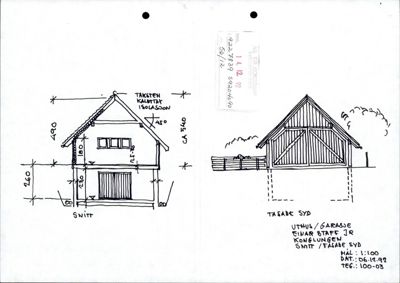 TAKSTEN
KALDTTAK
ISOLASJON
45°
490
CA 540
180
260
230
SNITT
FASADE SYD
UTHUS/GARASJE
EINAR STAFF JR
KONGLUNGEN
SNITT/FASADE SYD
MÅL: 1:100
DAT.: 06.12.92
TEG.: 100-03